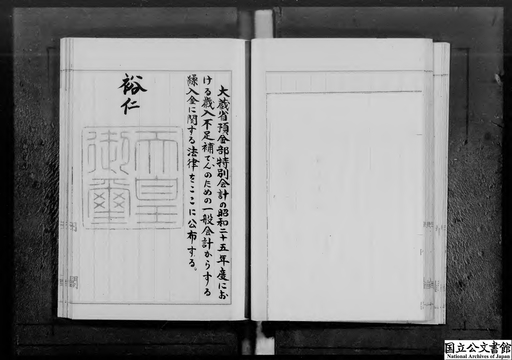 大蔵省預金部特別会計の昭和二十五年度にお
ける歳入不足補てんのための一般会計からする
繰入金に関する法律をここに公布する。
裕仁
天皇
御璽
国立公文書館
National Archives of Japan